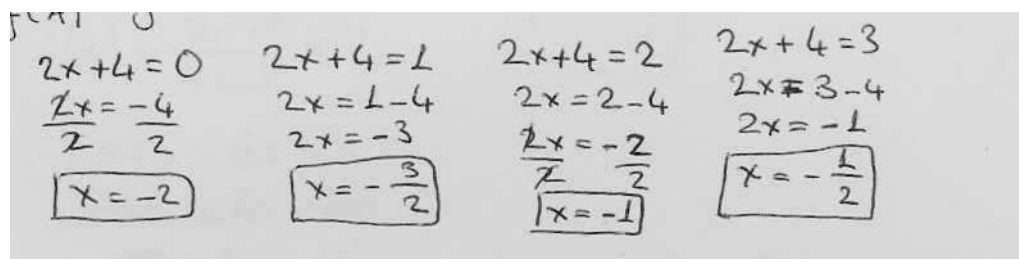 2x+4=0
2x = -4
2 2
x = -2
2x+4=1
2x = 1-4
2x = -3
x = - 3/2
2x+4=2
2x = 2-4
2x = -2
2 2
x = -1
2x+4=3
2x = 3-4
2x = -1
x = - 1/2